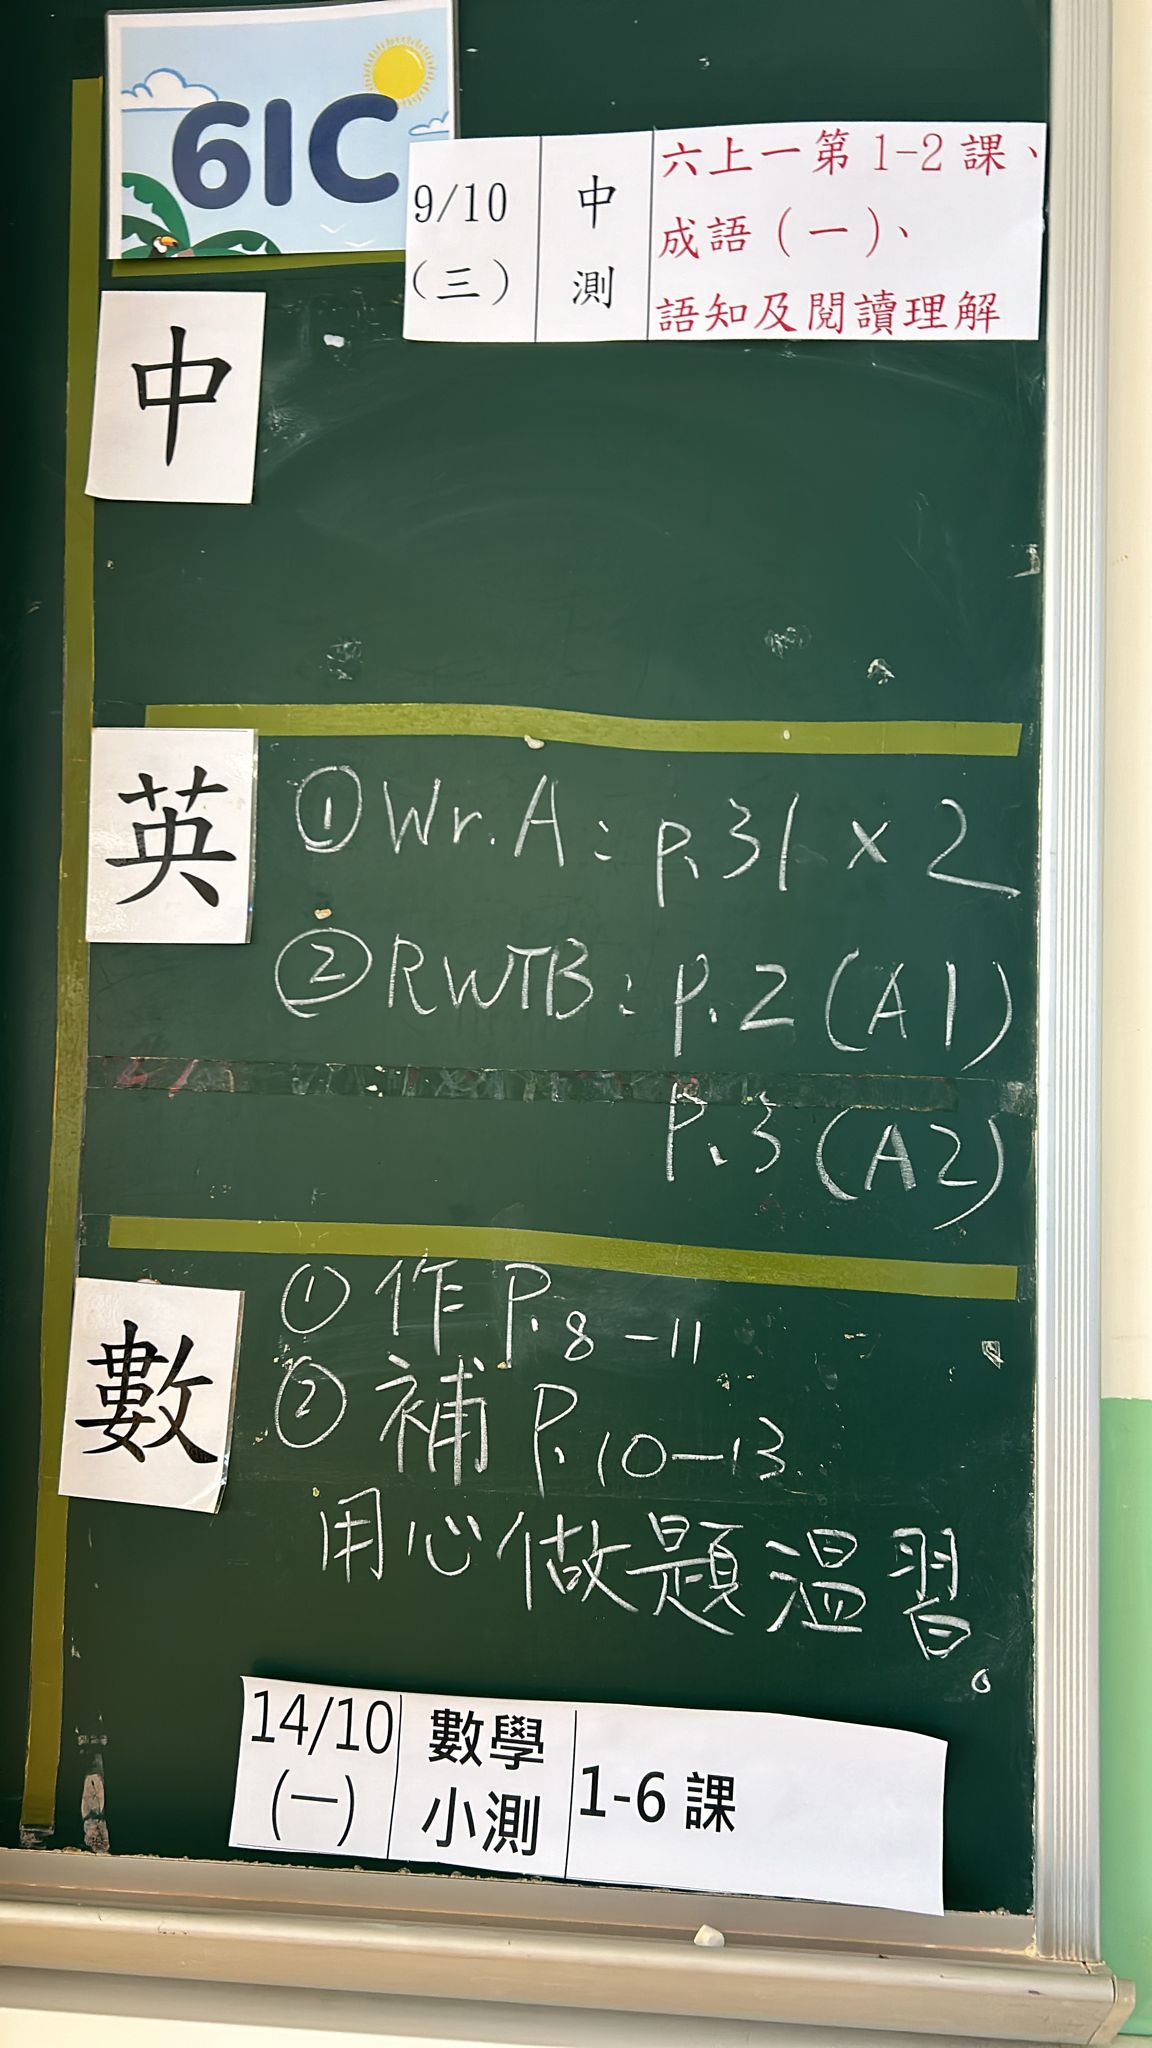 6IC
9/10
(三)
中
測
六上一第1-2課、
成語(一)、
語知及閱讀理解
中
英
①Wr.A:p.31 x 2
②RWTB:p.2(A1)
P.3(A2)
數
①作P.8-11
②補P.10-13
用心做題溫習。
14/10
(一)
數學
小測
1-6課